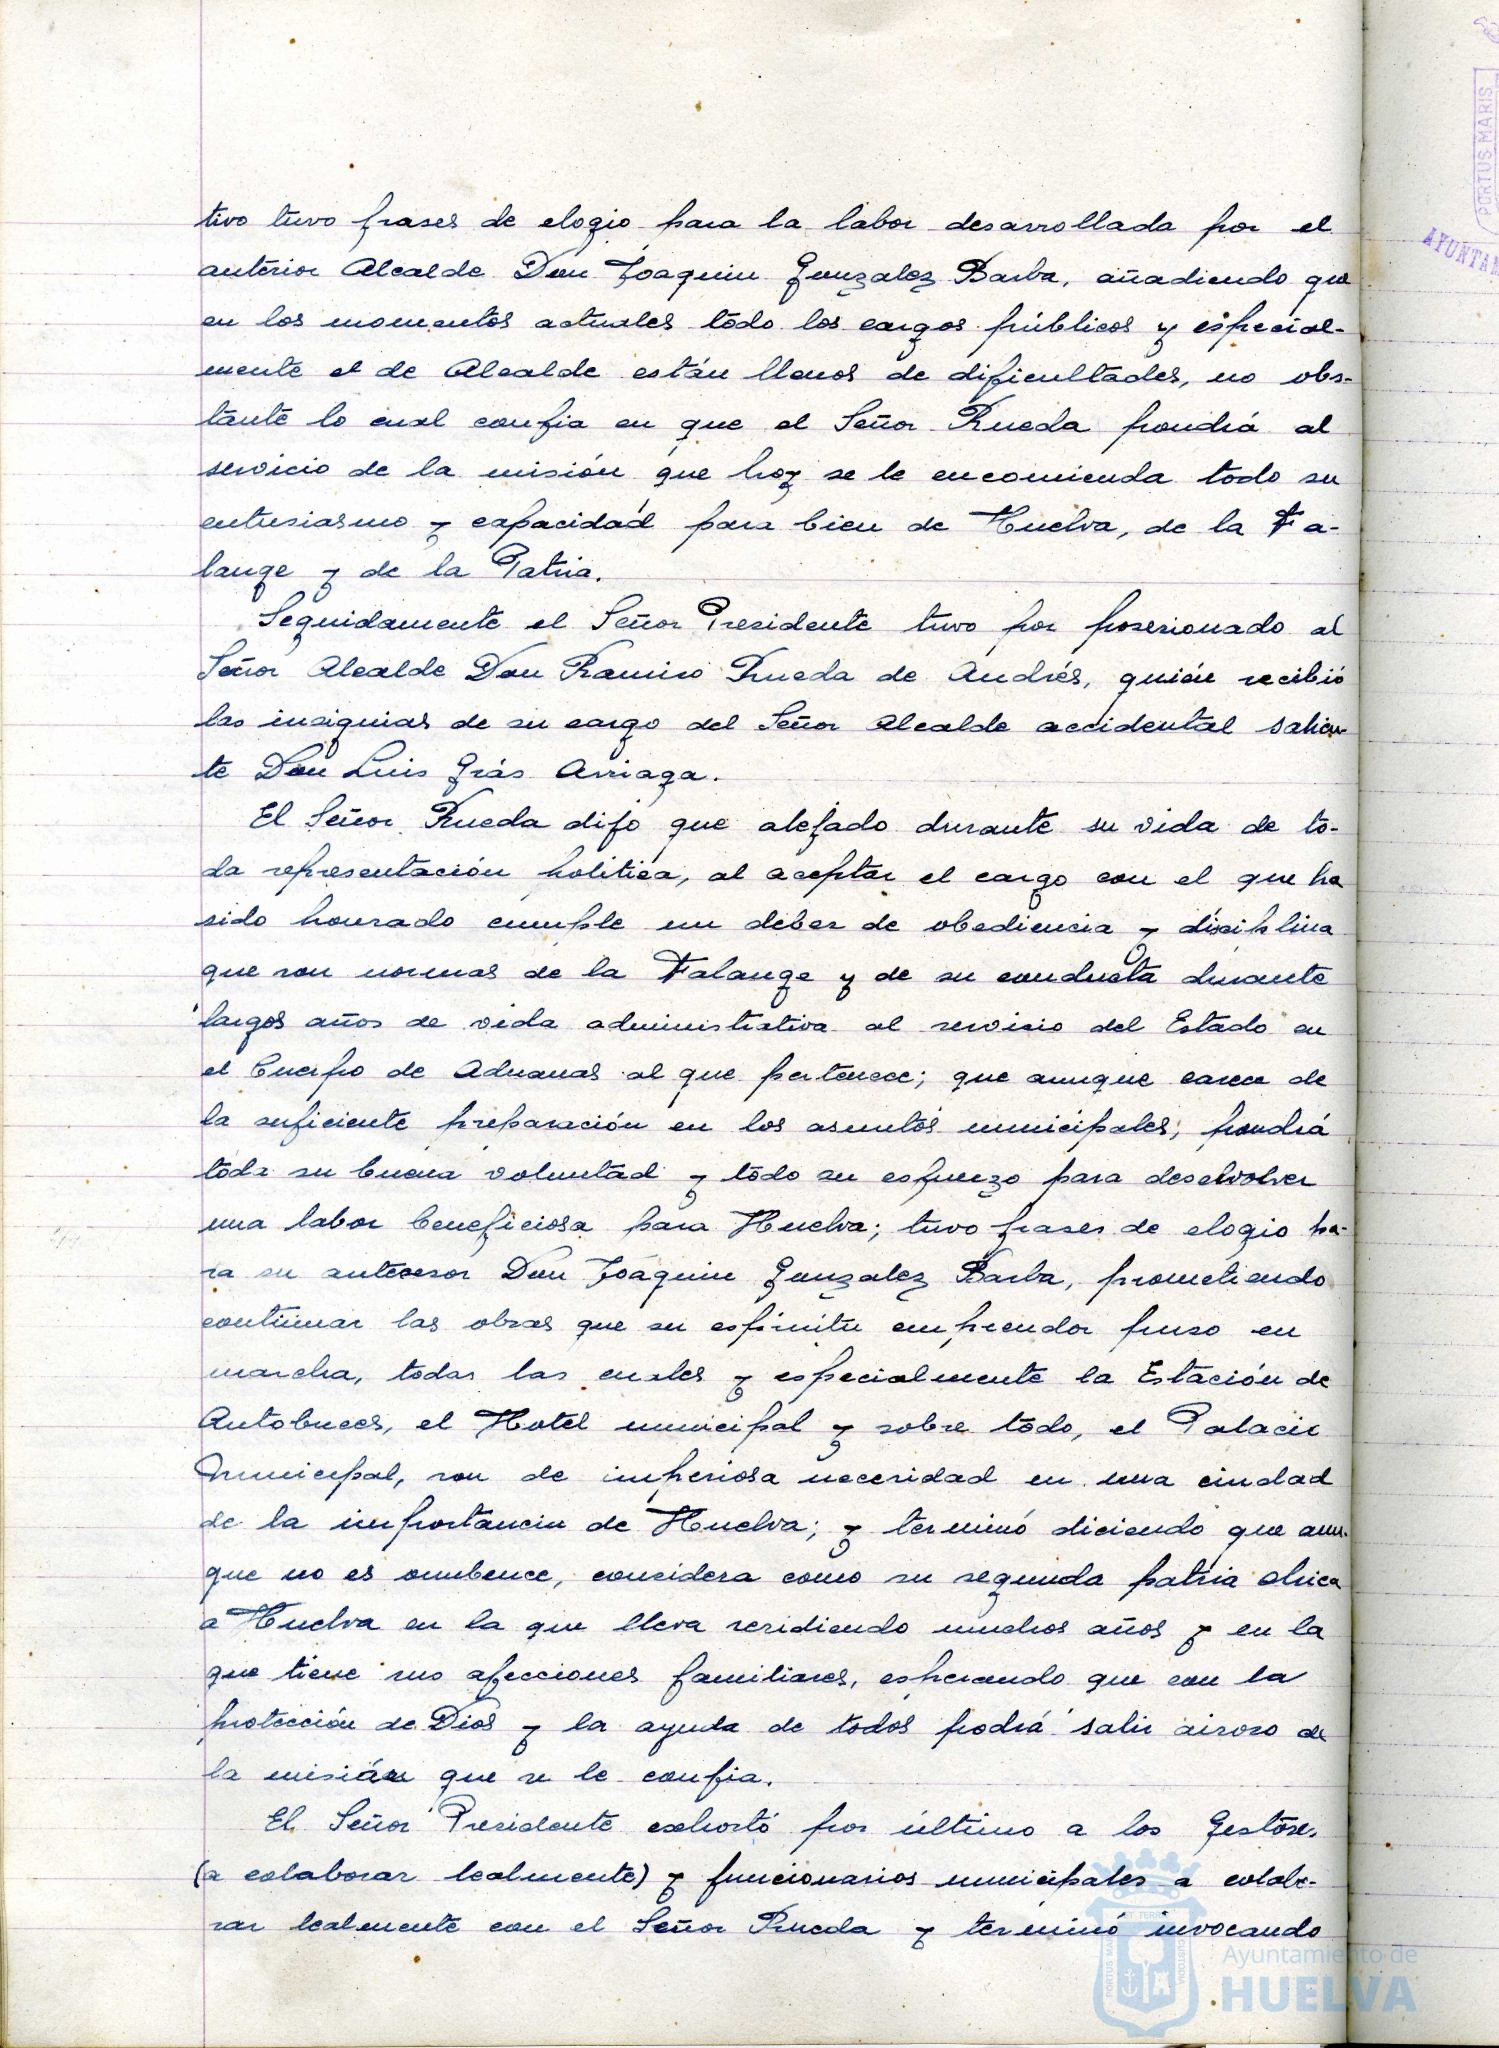 tivo tuvo frases de elogio para la labor desarrollada por el
anterior Alcalde Don Joaquin Gonzalez Barba, añadiendo que
en los momentos actuales todo los cargos públicos y especial-
mente el de Alcalde están llenos de dificultades, no obs-
tante lo cual confia en que el Señor Rueda pondrá al
servicio de la misión que hoy se le encomienda todo su
entusiasmo y capacidad para bien de Huelva, de la Fa-
lange y de la Patria.
Seguidamente el Señor Presidente tuvo por posesionado al
Señor Alcalde Don Ramiro Rueda de Andrés, quién recibió
las insignias de su cargo del Señor Alcalde accidental salien-
te Don Luis Grás Arriaga.
El Señor Rueda dijo que alejado durante su vida de to-
da representación politica, al aceptar el cargo con el que ha
sido honrado cumple un deber de obediencia y disciplina
que son normas de la Falange y de su conducta durante
largos años de vida administrativa al servicio del Estado en
el Cuerpo de Aduanas al que pertenece; que aunque carece de
la suficiente preparación en los asuntos municipales, pondrá
toda su buena voluntad y todo su esfuerzo para desevolver
una labor beneficiosa para Huelva; tuvo frases de elogio pa-
ra su antecesor Don Joaquin Gonzalez Barba, prometiendo
continuar las obras que su espiritu emprendor puso en
marcha, todas las cuales y especialmente la Estación de
Autobuces, el Hotel municipal y sobre todo, el Palacio
Municipal, son de imperiosa necesidad en una ciudad
de la importancia de Huelva; y terminó diciendo que aun-
que no es onubence, considera como su segunda patria chica
a Huelva en la que lleva residiendo muchos años y en la
que tiene sus afecciones familiares, esperando que con la
protección de Dios y la ayuda de todos podrá salir airoso de
la misión que se le confia.
El Señor Presidente exhortó por último a los Gestores
(a colaborar lealmente) y funcionarios municipales a colabo-
rar lealmente con el Señor Rueda y terminó invocando
PORTUS MARIS
AYUNTAM
Ayuntamiento de
HUELVA